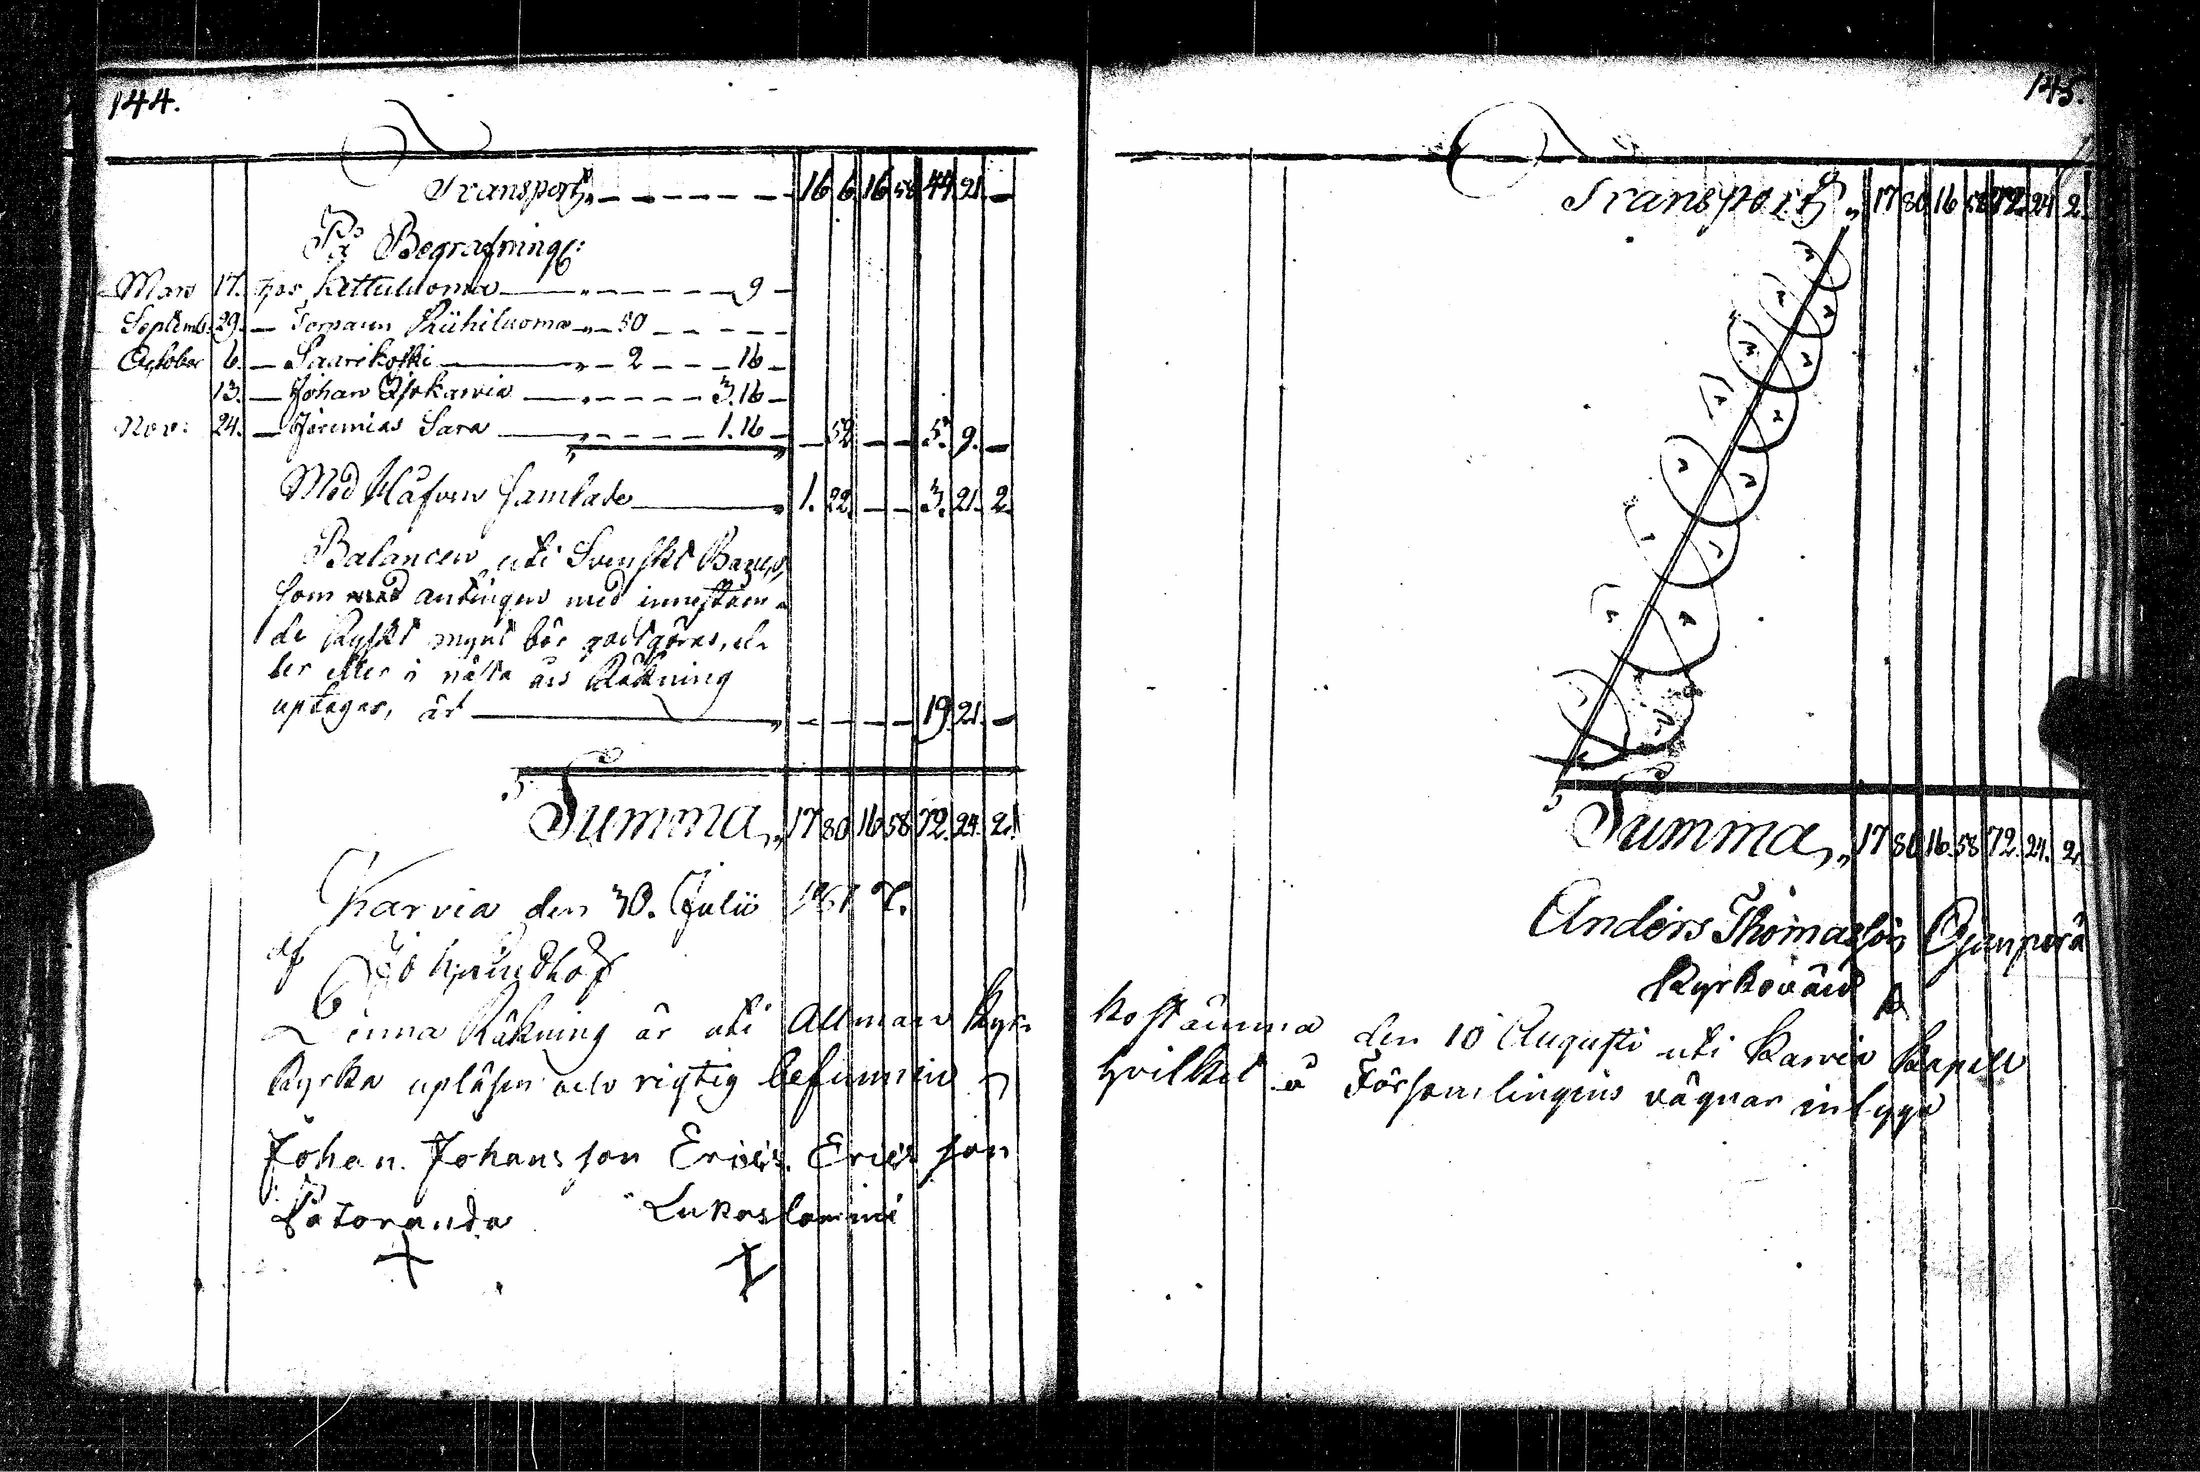 144.
Transport 16 6 16 58 44 21 —
På Begrafning:
Mars 17. Hos Kettuluoma — 9 —
Septemb: 29. — Torparen Riihiluoma — 50 —
October 6. — Saarikoski — 2 — 16 —
13. — Johan Ylikarvia — 3. 16 —
Nov: 24. — Jeremias Sara — 1. 16 — — 52 — — 5. 9. —
Med Håfven samlade 1. 22. — — 3. 21. 2.
Balancen uti Svenskt
som antingen med inneståen-
de Ryskt mynt bör godtgöras, el-
ler eller i nästa års Räkning
uptagas, är — — — — 19. 21. —
Summa 17 80 16 58 72. 24. 2.
Karvia den 30. Julii
af
Denna Räkning är uti Allmän Kyr-
Kyrka upläsen och rigtig befunnen
Johan Johansson Eric Ericsson
Lukaslammi
145.
Transport 17 80 16 58 72. 24 2.
Summa 17 80 16. 58 72. 24. 2.
Anders Thomasson Ojanperä
Kyrkovärd
kostämma den 10 Augusti uti Karvia Kapell
hvilket å Församlingens vägnar intyga